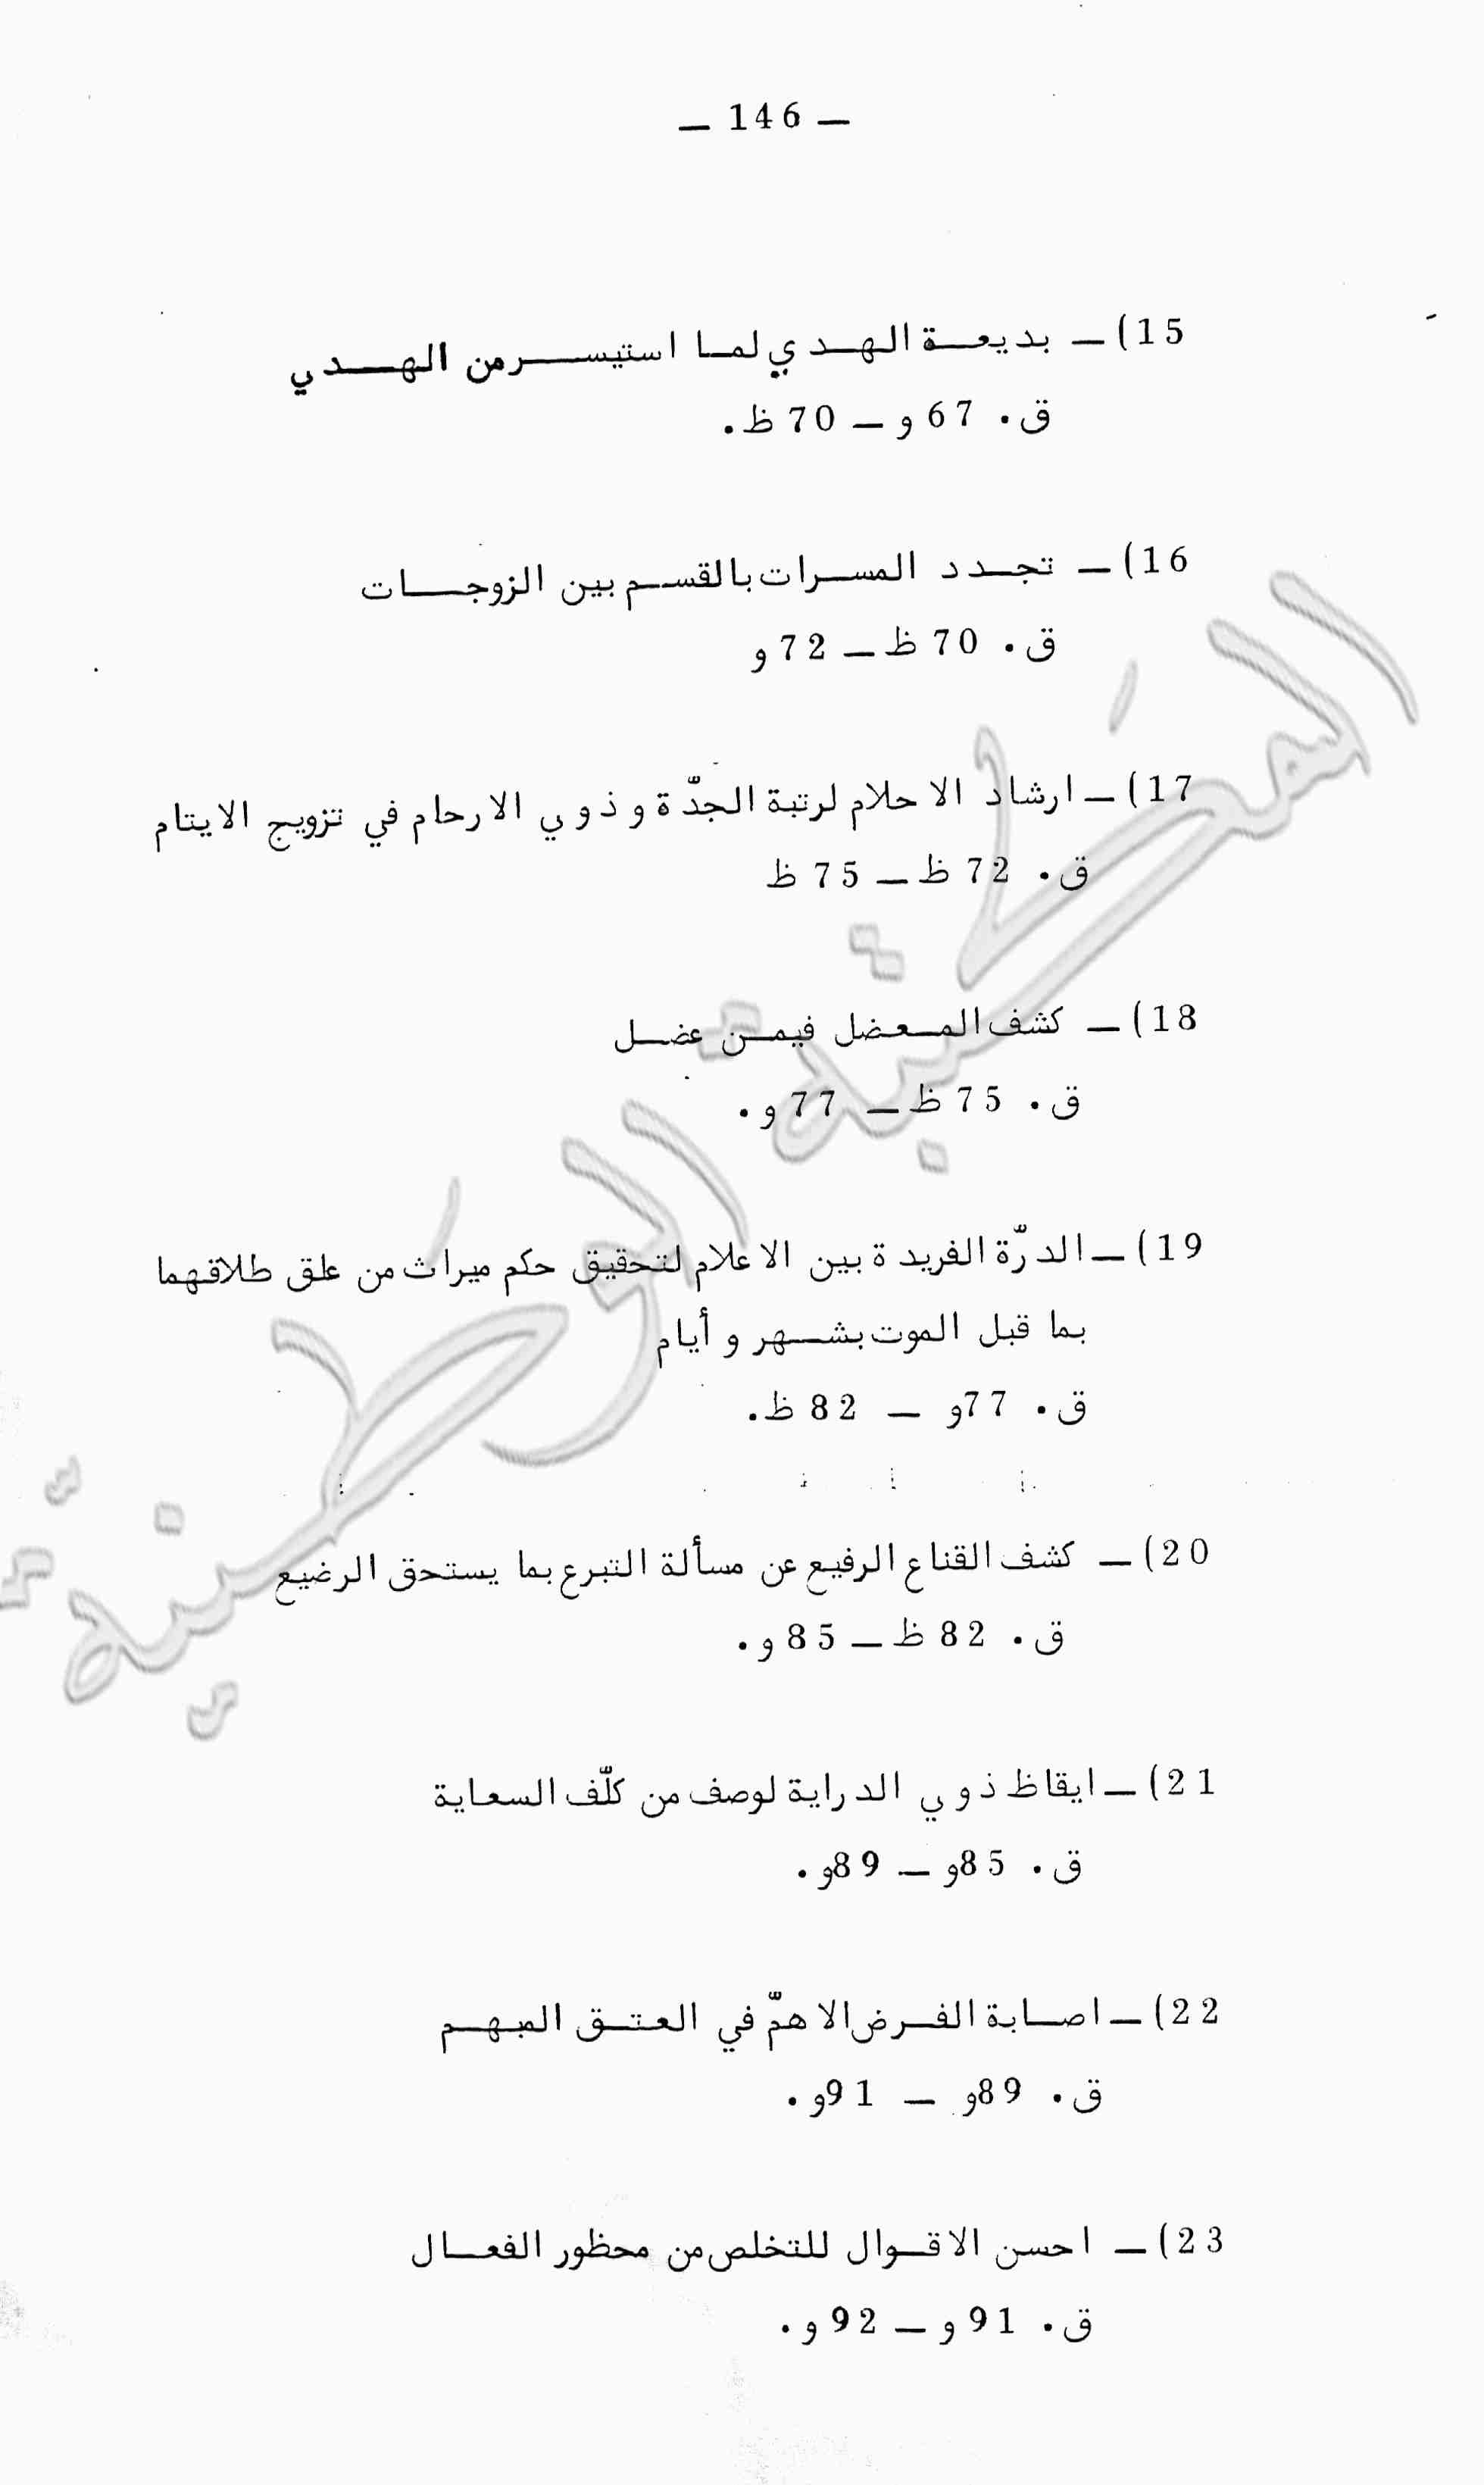 — 146 —
15) — بديعة الهدي لما استيسر من الهدي
ق. 67 و — 70 ظ.
16) — تجدد المسرات بالقسم بين الزوجات
ق. 70 ظ — 72 و
17) — ارشاد الاحلام لرتبة الجدّة وذوي الارحام في تزويج الايتام
ق. 72 ظ — 75 ظ
18) — كشف المعضل فيمن عضل
ق. 75 ظ — 77 و.
19) — الدرّة الفريدة بين الاعلام لتحقيق حكم ميراث من علق طلاقهما
بما قبل الموت بشهر و أيام
ق. 77 و — 82 ظ.
20) — كشف القناع الرفيع عن مسألة التبرع بما يستحق الرضيع
ق. 82 ظ — 85 و.
21) — ايقاظ ذوي الدراية لوصف من كلّف السعاية
ق. 85 و — 89 و.
22) — اصابة الفرض الاهمّ في العتق المبهم
ق. 89 و — 91 و.
23) — احسن الاقوال للتخلص من محظور الفعال
ق. 91 و — 92 و.
المكتبة الوطنية